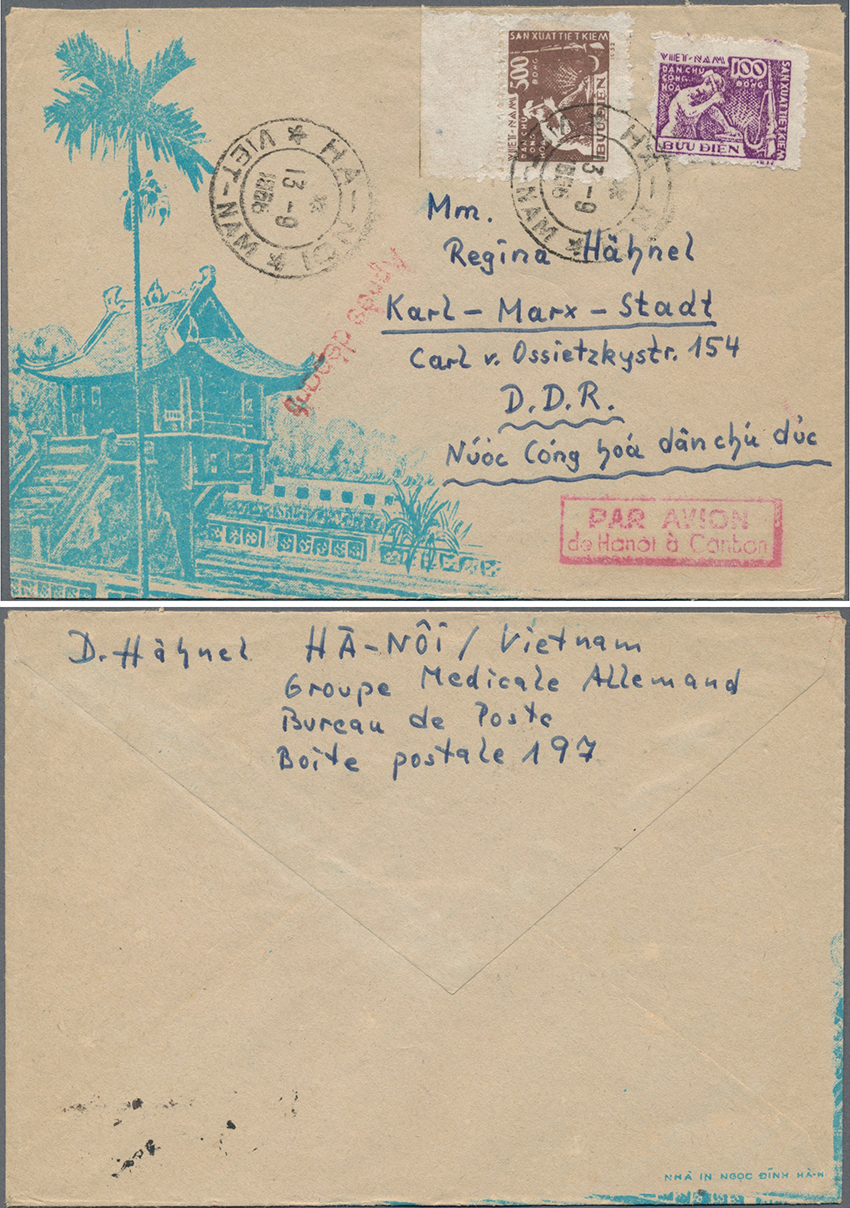 SẢN XUẤT TIẾT KIỆM
500
ĐỒNG
VIỆT-NAM
DÂN CHỦ
CỘNG
BƯU ĐIỆN
VIỆT-NAM
100
DÂN CHỦ
CỘNG
HÒA
ĐỒNG
SẢN XUẤT TIẾT KIỆM
BƯU ĐIỆN
HÀ-NỘI * VIỆT-NAM *
13-9
1956
HÀ-NỘI
VIỆT-NAM *
13-9
1956
Mm.
Regina Hähnel
Karl-Marx-Stadt
Carl v. Ossietzkystr. 154
D.D.R.
Nước Cóng hoá dân chủ đức
Après départ
PAR AVION
de Hanoi à Canton
D. Hähnel HÀ-NÔI / Vietnam
Groupe Medicale Allemand
Bureau de Poste
Boîte postale 197
NHÀ IN NGỌC ĐĨNH HÀ-N